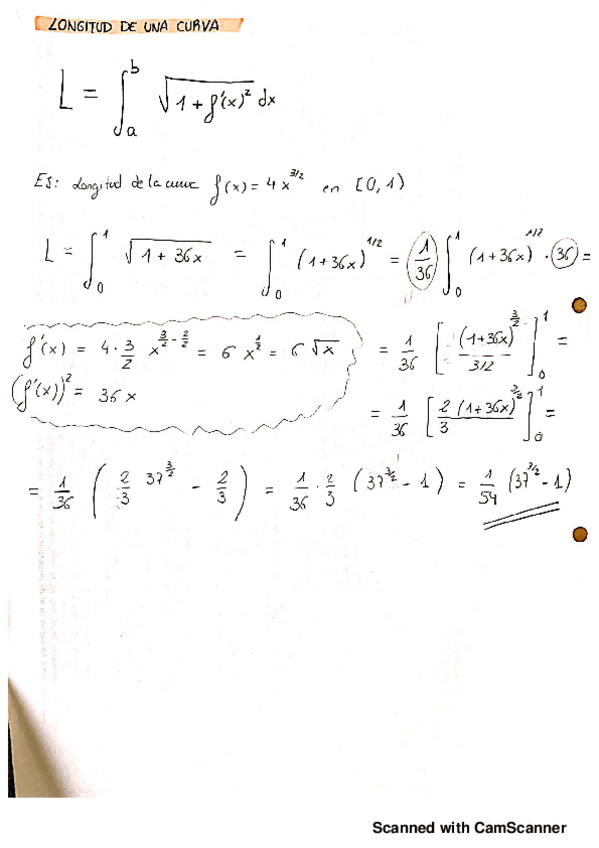 LONGITUD DE UNA CURVA
L = ∫_a^b √(1 + f'(x)²) dx
Ej: Longitud de la curva f(x) = 4x^(3/2) en [0,1)
L = ∫_0^1 √(1 + 36x) = ∫_0^1 (1+36x)^(1/2) = 1/36 ∫_0^1 (1+36x)^(1/2) · 36 =
f'(x) = 4 · 3/2 x^(3/2 - 2/2) = 6 x^(1/2) = 6 √x
= 1/36 [(1+36x)^(3/2) / 3/2]_0^1 =
(f'(x))² = 36x
= 1/36 [2 (1+36x)^(3/2) / 3]_0^1 =
= 1/36 (2/3 37^(3/2) - 2/3) = 1/36 · 2/3 (37^(3/2) - 1) = 1/54 (37^(3/2) - 1)
Scanned with CamScanner